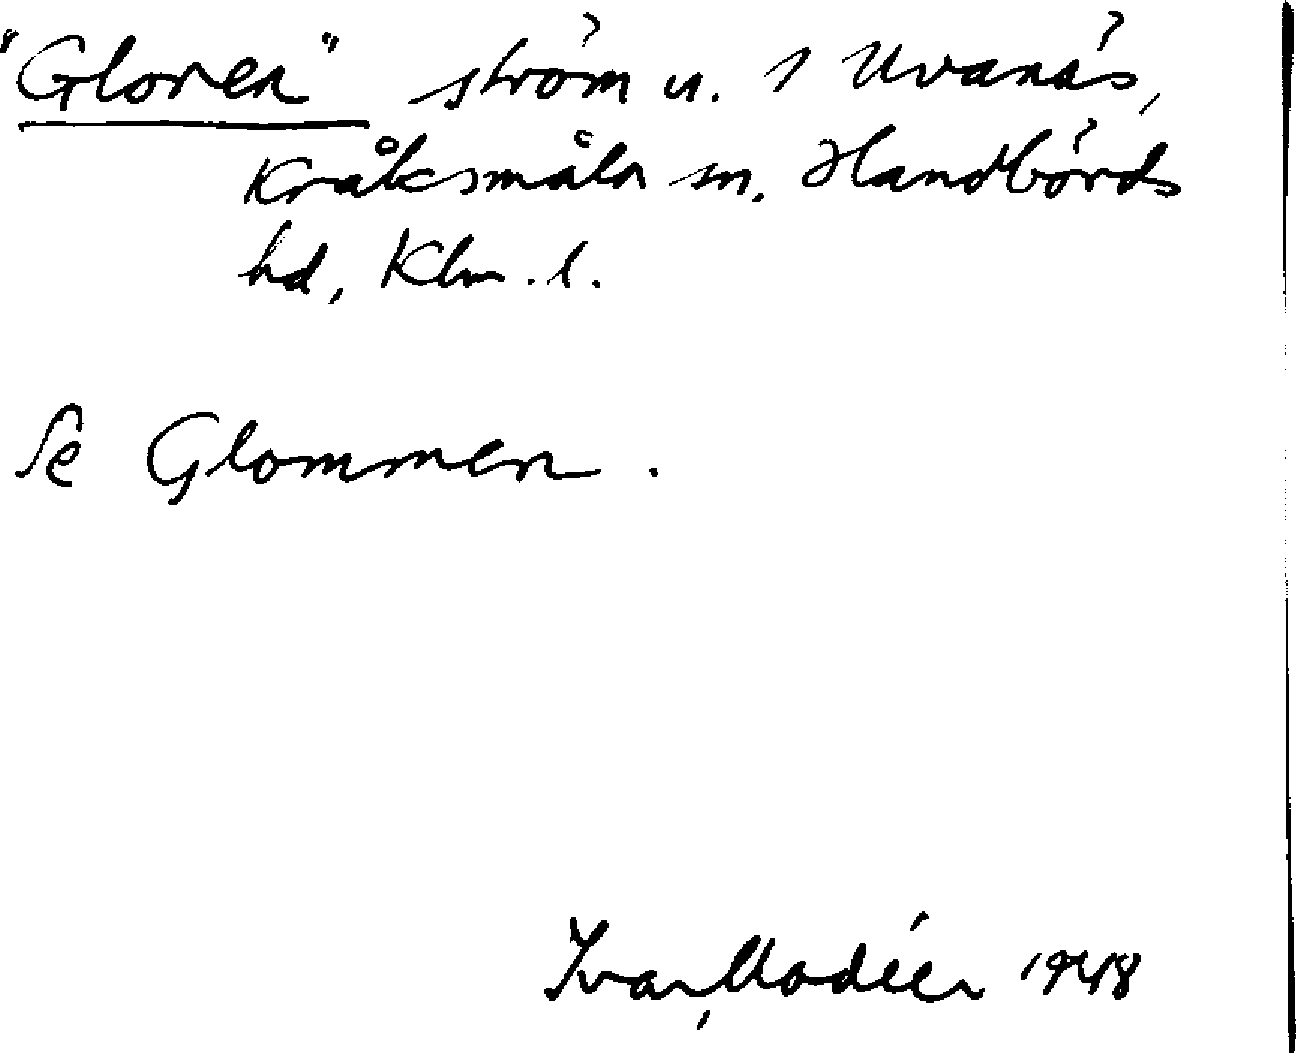 "Gloren" ström n. 1 Uvanäs,
Kråksmåla sn. Handbörds
hd, Klm. l.
Se Glommen.
Ivar Modéer 1948